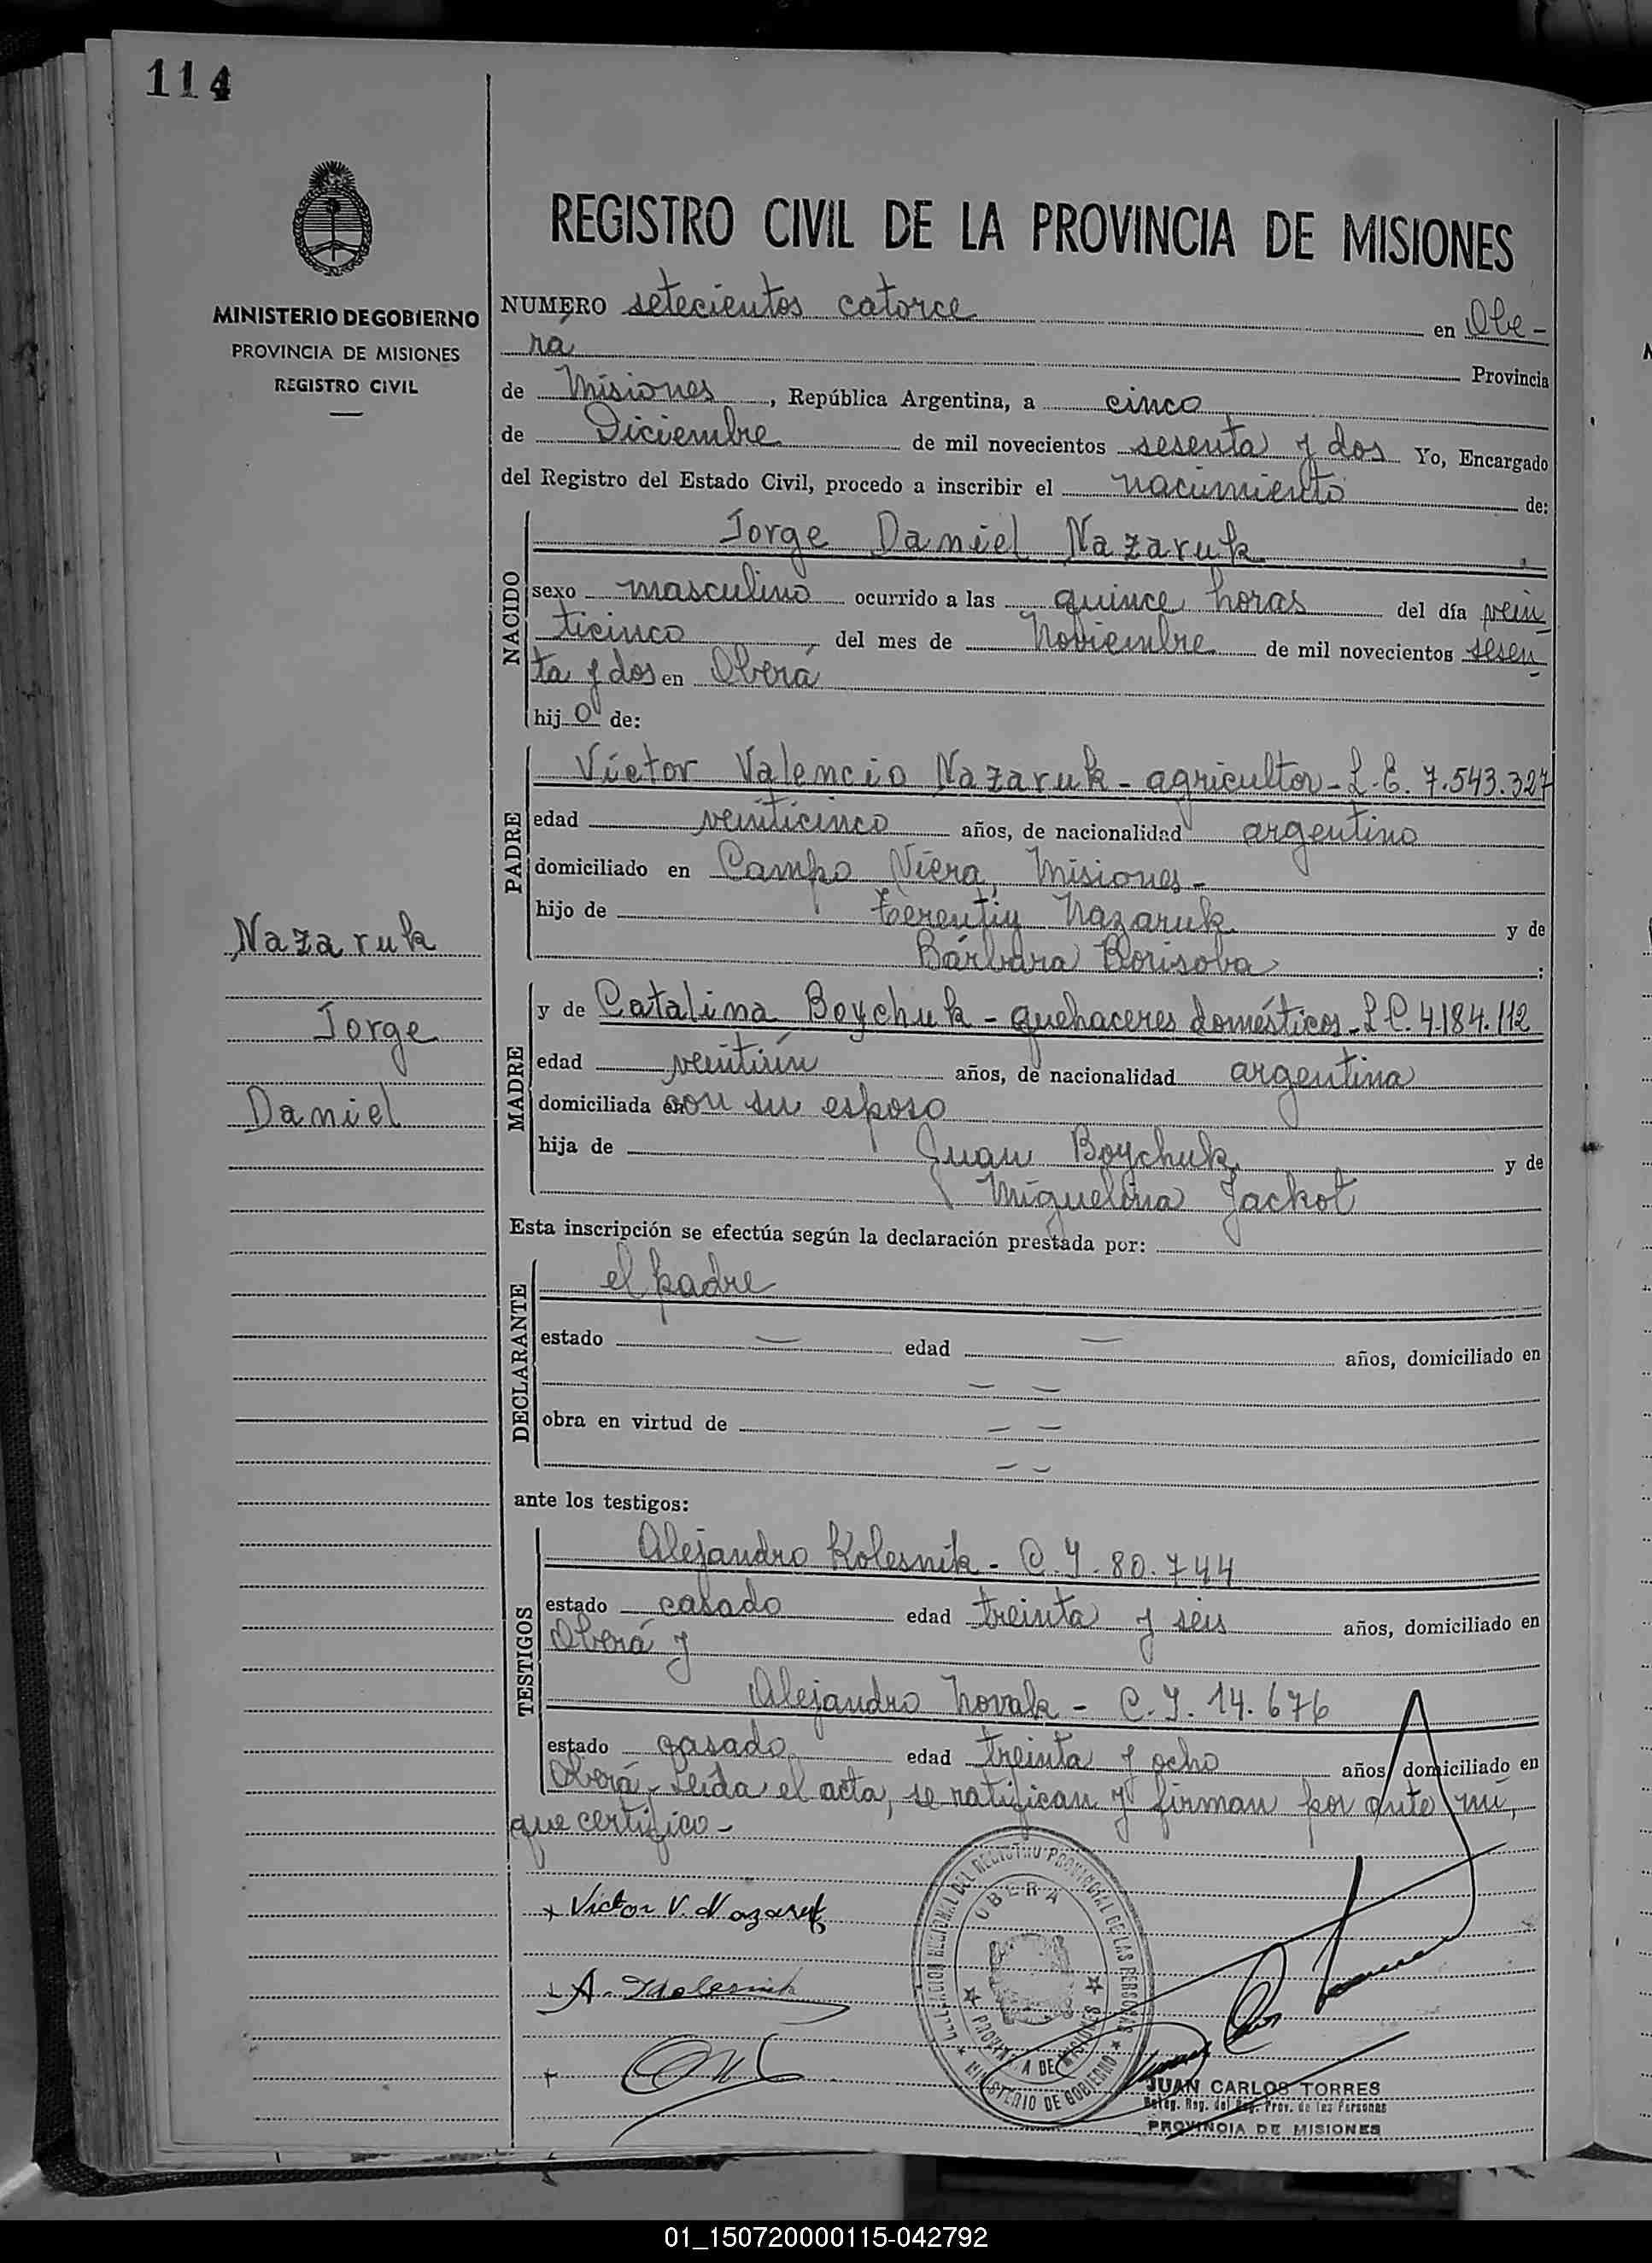 114
MINISTERIO DE GOBIERNO
PROVINCIA DE MISIONES
REGISTRO CIVIL
REGISTRO CIVIL DE LA PROVINCIA DE MISIONES
NUMERO setecientos catorce en Obe-
rá Provincia
de Misiones, República Argentina, a cinco
de Diciembre de mil novecientos sesenta y dos Yo, Encargado
del Registro del Estado Civil, procedo a inscribir el nacimiento de:
NACIDO
Jorge Daniel Nazaruk
sexo masculino ocurrido a las quince horas del día vein
ticinco, del mes de Noviembre de mil novecientos sesen
ta y dos en Oberá
hij o de:
PADRE
Víctor Valencio Nazaruk - agricultor - L.E. 7.543.327
edad veinticinco años, de nacionalidad argentino
domiciliado en Campo Viera, Misiones -
hijo de Terentiy Nazaruk y de
Bárbara Borisova ;
Nazaruk
Jorge
Daniel
MADRE
y de Catalina Boychuk - quehaceres domésticos - L.C. 4.184.112
edad veintiún años, de nacionalidad argentina
domiciliada con su esposo
hija de Juan Boychuk y de
Miguelina Jackot
Esta inscripción se efectúa según la declaración prestada por:
DECLARANTE
el padre
estado — edad — años, domiciliado en
— —
obra en virtud de — —
— —
ante los testigos:
TESTIGOS
Alejandro Kolesnik - C.I. 80.744
estado casado edad treinta y seis años, domiciliado en
Oberá y
Alejandro Novak - C.I. 14.676
estado casado edad treinta y ocho años, domiciliado en
Oberá - Leída el acta, se ratifican y firman por ante mí,
que certifico -
Victor V. Nazaruk
A. Kolesnik
DELEGACION REGIONAL DEL REGISTRO PROVINCIAL DE LAS PERSONAS
OBERA
PROVINCIA DE MISIONES
MINISTERIO DE GOBIERNO
JUAN CARLOS TORRES
Deleg. Reg. del Reg. Prov. de las Personas
PROVINCIA DE MISIONES
01_150720000115-042792